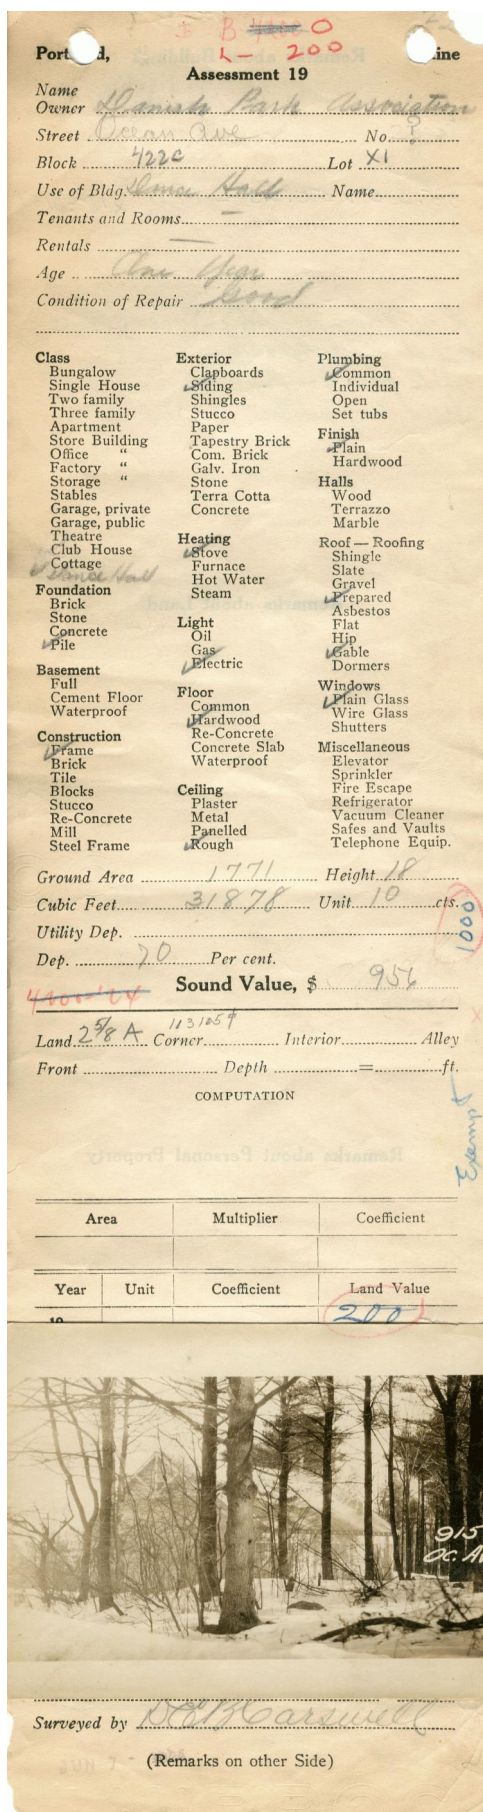 B 4200 0
L- 200
Port d, ine
Assessment 19
Name
Owner Danish Park Association
Street Ocean Ave No. ?
Block 422C Lot XI
Use of Bldg. Dance Hall Name
Tenants and Rooms —
Rentals —
Age One Year
Condition of Repair Good
Class
Bungalow
Single House
Two family
Three family
Apartment
Store Building
Office "
Factory "
Storage "
Stables
Garage, private
Garage, public
Theatre
Club House
Cottage
✓ Dance Hall
Foundation
Brick
Stone
Concrete
✓ Pile
Basement
Full
Cement Floor
Waterproof
Construction
✓ Frame
Brick
Tile
Blocks
Stucco
Re-Concrete
Mill
Steel Frame
Exterior
Clapboards
✓ Siding
Shingles
Stucco
Paper
Tapestry Brick
Com. Brick
Galv. Iron
Stone
Terra Cotta
Concrete
Heating
✓ Stove
Furnace
Hot Water
Steam
Light
Oil
Gas
✓ Electric
Floor
Common
✓ Hardwood
Re-Concrete
Concrete Slab
Waterproof
Ceiling
Plaster
Metal
Panelled
✓ Rough
Plumbing
✓ Common
Individual
Open
Set tubs
Finish
✓ Plain
Hardwood
Halls
Wood
Terrazzo
Marble
Roof — Roofing
Shingle
Slate
Gravel
✓ Prepared
Asbestos
Flat
Hip
✓ Gable
Dormers
Windows
✓ Plain Glass
Wire Glass
Shutters
Miscellaneous
Elevator
Sprinkler
Fire Escape
Refrigerator
Vacuum Cleaner
Safes and Vaults
Telephone Equip.
Ground Area 1771 Height 18
Cubic Feet 31878 Unit 10 cts.
1000
Utility Dep.
Dep. 70 Per cent.
Sound Value, $ 956
Land 2 5/8 A Corner Interior Alley
Front Depth = ft.
COMPUTATION
Exempt
Area Multiplier Coefficient
Year Unit Coefficient Land Value
19 200
915
OC. A
Surveyed by Carswell
(Remarks on other Side)